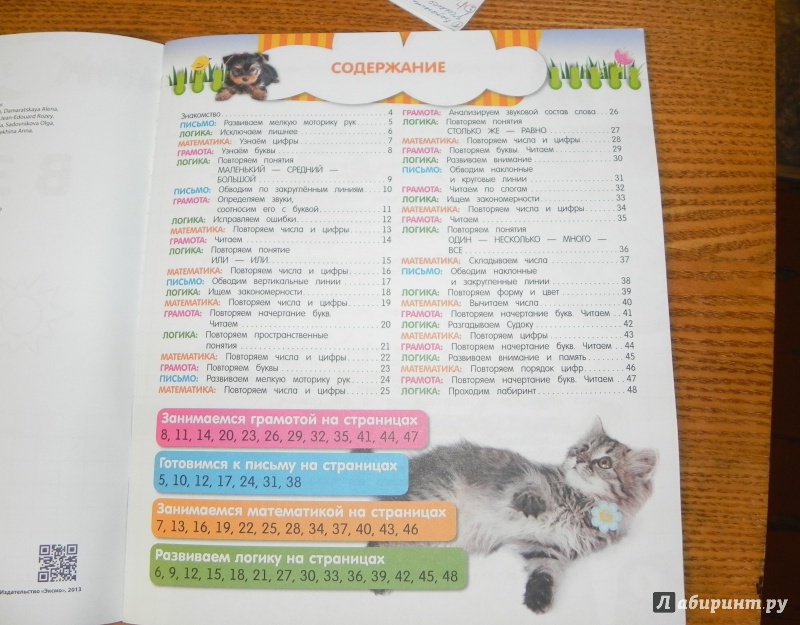 СОДЕРЖАНИЕ
Знакомство 4
ПИСЬМО: Развиваем мелкую моторику рук 5
ЛОГИКА: Исключаем лишнее 6
МАТЕМАТИКА: Узнаём цифры 7
ГРАМОТА: Узнаём буквы 8
ЛОГИКА: Повторяем понятия
МАЛЕНЬКИЙ — СРЕДНИЙ —
БОЛЬШОЙ 9
ПИСЬМО: Обводим по закруглённым линиям 10
ГРАМОТА: Определяем звуки,
соотносим его с буквой 11
ЛОГИКА: Исправляем ошибки 12
МАТЕМАТИКА: Повторяем числа и цифры 13
ГРАМОТА: Читаем 14
ЛОГИКА: Повторяем понятие
ИЛИ — ИЛИ 15
МАТЕМАТИКА: Повторяем числа и цифры 16
ПИСЬМО: Обводим вертикальные линии 17
ЛОГИКА: Ищем закономерности 18
МАТЕМАТИКА: Повторяем числа и цифры 19
ГРАМОТА: Повторяем начертание букв.
Читаем 20
ЛОГИКА: Повторяем пространственные
понятия 21
МАТЕМАТИКА: Повторяем числа и цифры 22
ГРАМОТА: Повторяем буквы 23
ПИСЬМО: Развиваем мелкую моторику рук 24
МАТЕМАТИКА: Повторяем числа и цифры 25
ГРАМОТА: Анализируем звуковой состав слова 26
ЛОГИКА: Повторяем понятия
СТОЛЬКО ЖЕ — РАВНО 27
МАТЕМАТИКА: Повторяем числа и цифры 28
ГРАМОТА: Повторяем буквы. Читаем 29
ЛОГИКА: Развиваем внимание 30
ПИСЬМО: Обводим наклонные
и круговые линии 31
ГРАМОТА: Читаем по слогам 32
ЛОГИКА: Ищем закономерности 33
МАТЕМАТИКА: Повторяем числа и цифры 34
ГРАМОТА: Читаем 35
ЛОГИКА: Повторяем понятия
ОДИН — НЕСКОЛЬКО — МНОГО —
ВСЕ 36
МАТЕМАТИКА: Складываем числа 37
ПИСЬМО: Обводим наклонные
и закругленные линии 38
ЛОГИКА: Повторяем форму и цвет 39
МАТЕМАТИКА: Вычитаем числа 40
ГРАМОТА: Повторяем начертание букв. Читаем 41
ЛОГИКА: Разгадываем Судоку 42
МАТЕМАТИКА: Повторяем цифры 43
ГРАМОТА: Повторяем начертание букв. Читаем 44
ЛОГИКА: Развиваем внимание и память 45
МАТЕМАТИКА: Повторяем порядок цифр 46
ГРАМОТА: Повторяем начертание букв. Читаем 47
ЛОГИКА: Проходим лабиринт 48
Занимаемся грамотой на страницах
8, 11, 14, 20, 23, 26, 29, 32, 35, 41, 44, 47
Готовимся к письму на страницах
5, 10, 12, 17, 24, 31, 38
Занимаемся математикой на страницах
7, 13, 16, 19, 22, 25, 28, 34, 37, 40, 43, 46
Развиваем логику на страницах
6, 9, 12, 15, 18, 21, 27, 30, 33, 36, 39, 42, 45, 48
Damaratskaya Alena,
Jean-Edouard Rozey,
Sadovnikova Olga,
Anna,
Издательство «Эксмо», 2013
Лабиринт.ру